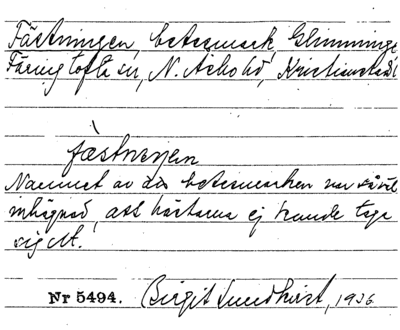 Fästningen, betesmark, Glimminge
Färingtofta sn, N. Åsbo hd, Kristianstads l
fästnengen
Namnet av att betesmarken var så väl
inhägnad, att hästarna ej kunde taga
sig ut.
Nr 5494. Birgit Lundkvist, 1936